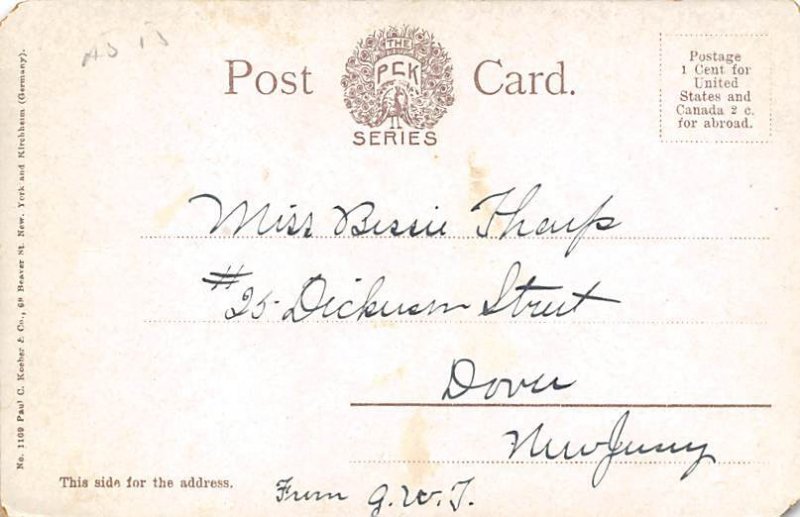 Post Card.
THE
PCK
SERIES
Postage
1 Cent for
United
States and
Canada 2 c.
for abroad.
Miss Bessie Tharp
#25 Dickerson Street
Dover
New Jersey
This side for the address.
From G. W. T.
No. 1109 Paul C. Koeber & Co., 69 Beaver St. New. York and Kirchheim (Germany).